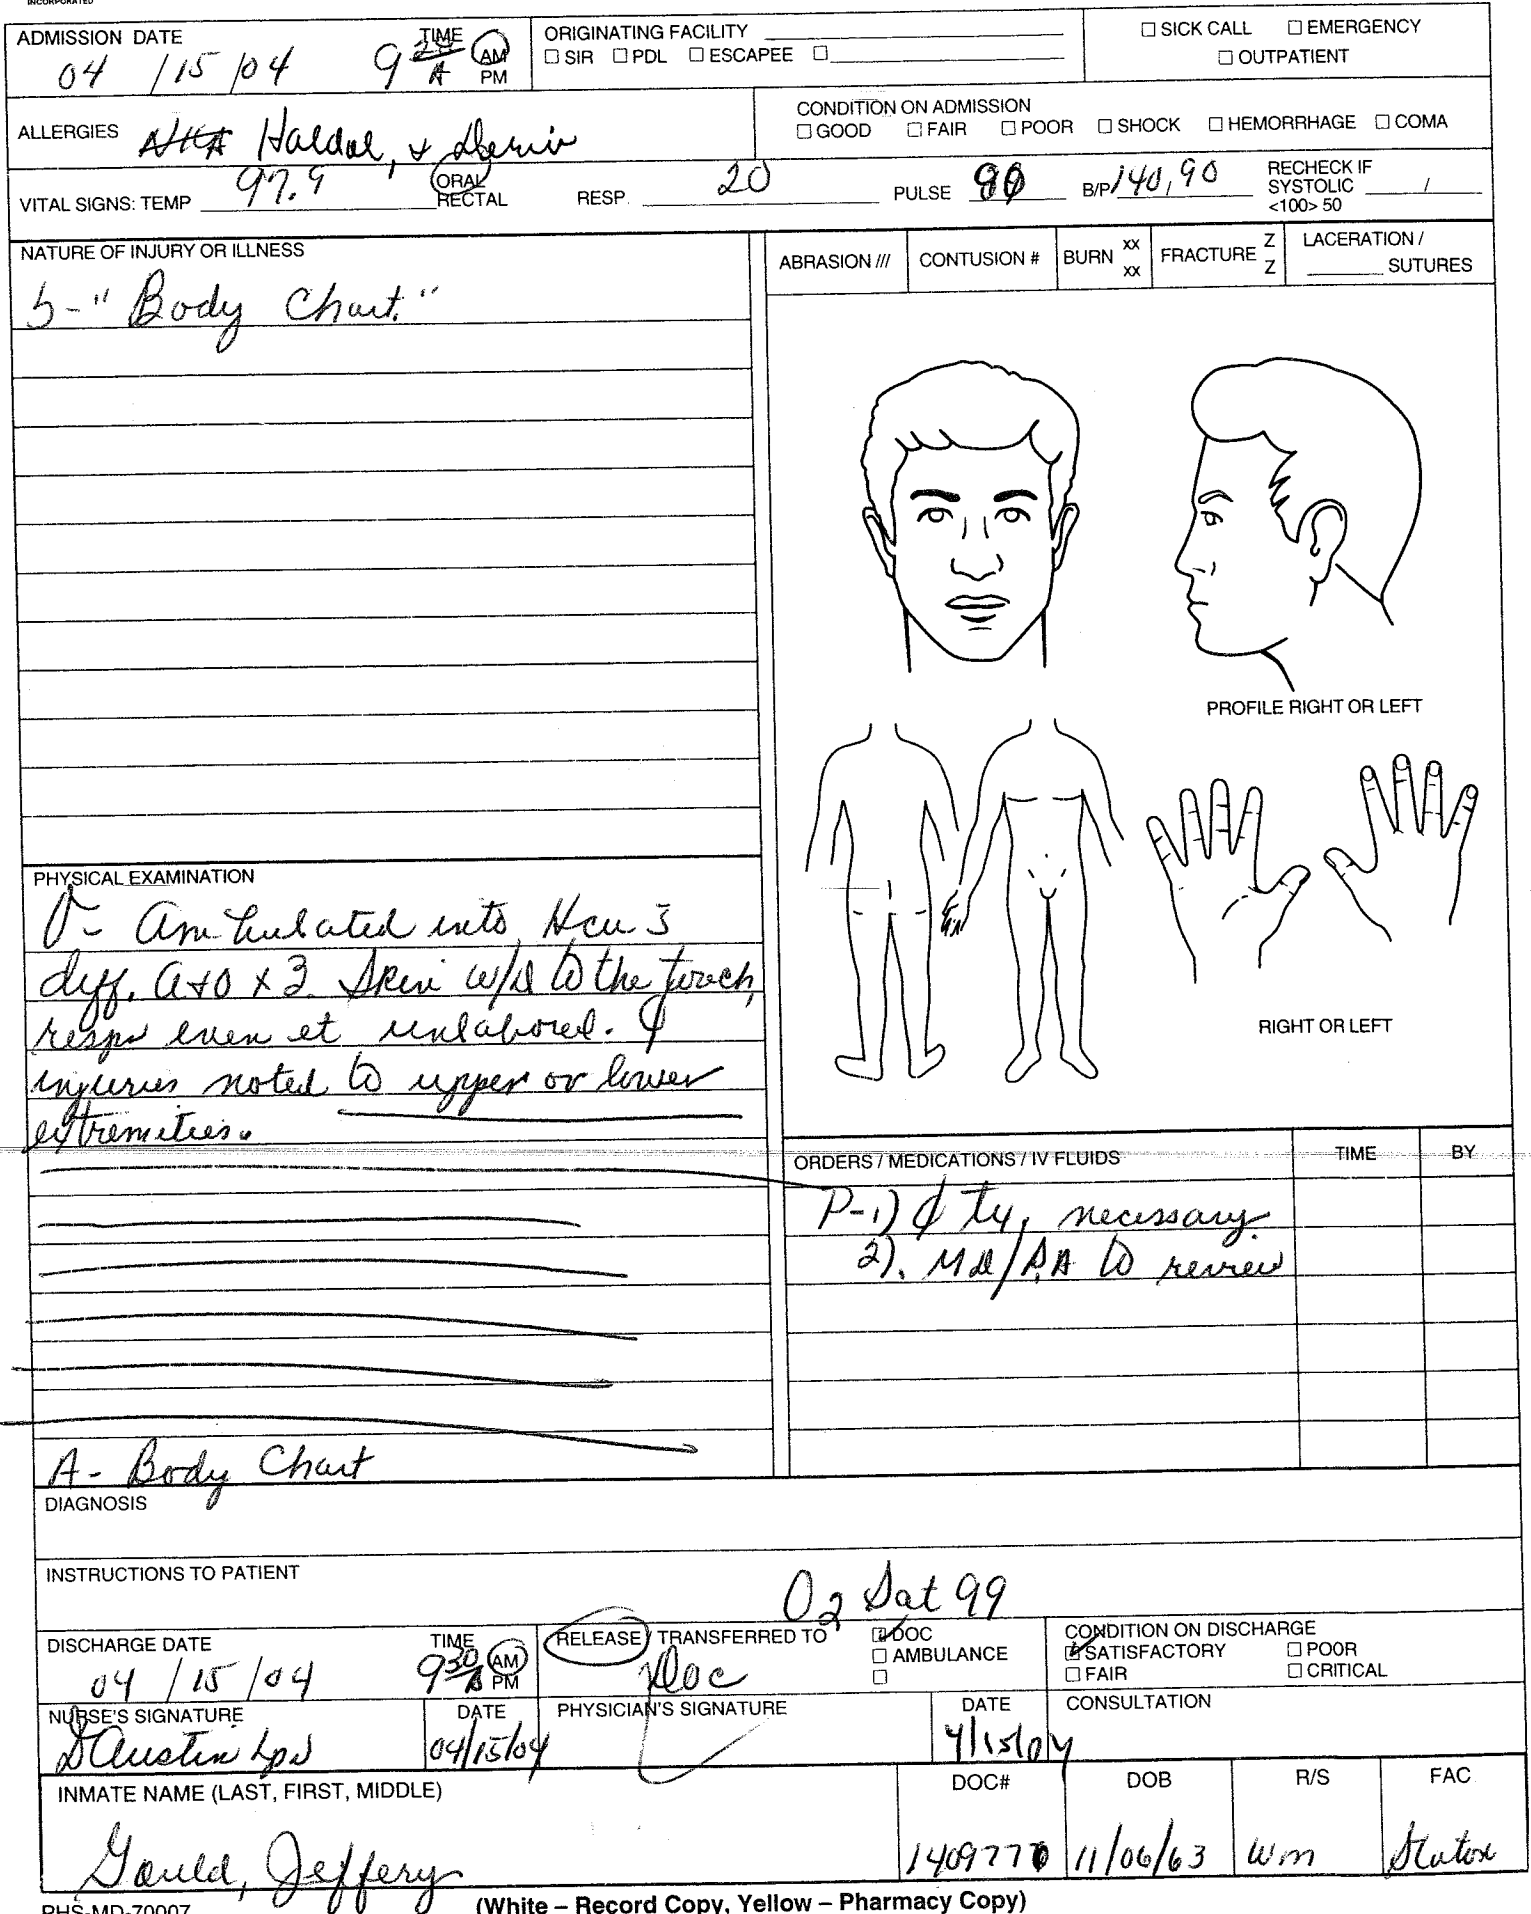 INCORPORATED
ADMISSION DATE 04 / 15 / 04 TIME 9 AM PM
ORIGINATING FACILITY
☐ SIR ☐ PDL ☐ ESCAPEE ☐
☐ SICK CALL ☐ EMERGENCY
☐ OUTPATIENT
ALLERGIES NKA Haldol, +
CONDITION ON ADMISSION
☐ GOOD ☐ FAIR ☐ POOR ☐ SHOCK ☐ HEMORRHAGE ☐ COMA
VITAL SIGNS: TEMP 97.9 ORAL RECTAL RESP. 20 PULSE B/P 140, 90 RECHECK IF SYSTOLIC / <100> 50
NATURE OF INJURY OR ILLNESS
S- "Body Chart."
ABRASION /// CONTUSION # BURN xx xx FRACTURE Z Z LACERATION / SUTURES
PROFILE RIGHT OR LEFT
RIGHT OR LEFT
PHYSICAL EXAMINATION
O- Ambulated into Hcu s̄
diff. A+O x 3. Skin w/d to the touch,
resps even et unlabored. ϕ
injuries noted to upper or lower
extremities.
A- Body Chart
ORDERS / MEDICATIONS / IV FLUIDS TIME BY
P-1) ϕ tx, necessary
2). MD/PA to review
DIAGNOSIS
INSTRUCTIONS TO PATIENT
O2 Sat 99
DISCHARGE DATE 04 / 15 / 04 TIME 9 30 AM PM
RELEASE / TRANSFERRED TO ☑ DOC
Doc
☐ AMBULANCE
☐
CONDITION ON DISCHARGE
☑ SATISFACTORY ☐ POOR
☐ FAIR ☐ CRITICAL
NURSE'S SIGNATURE DAustin LPN
DATE 04/15/04
PHYSICIAN'S SIGNATURE
DATE 4/15/04
CONSULTATION
INMATE NAME (LAST, FIRST, MIDDLE)
Gould, Jeffery
DOC# 1409770
DOB 11/06/63
R/S Wm
FAC Staton
PHS-MD-70007
(White – Record Copy, Yellow – Pharmacy Copy)